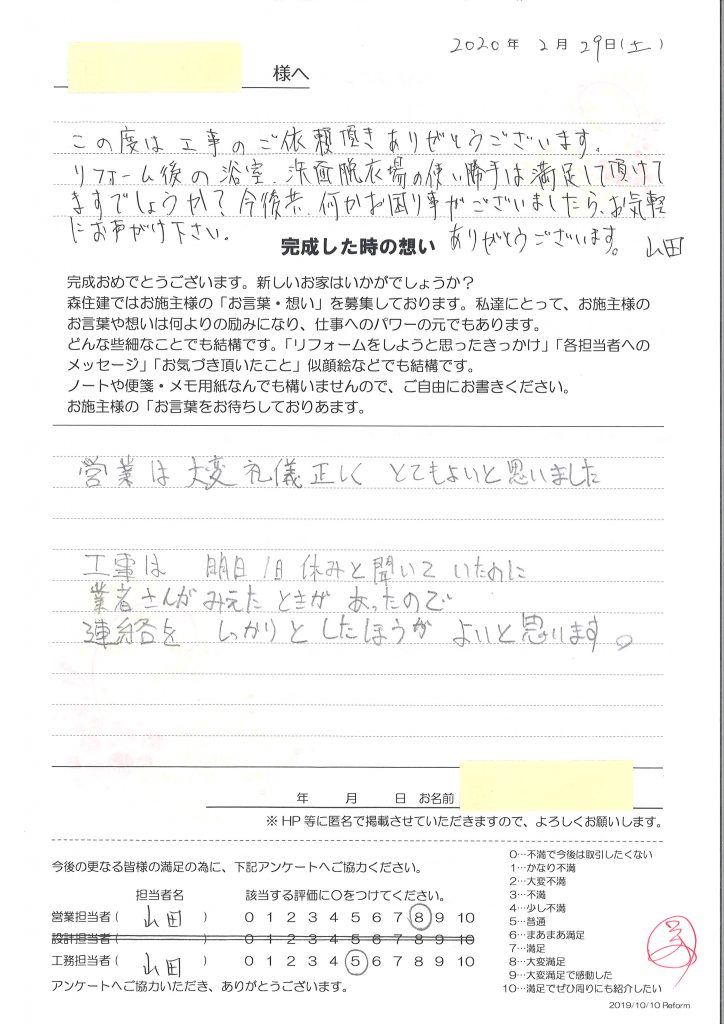 2020年 2月 29日(土)
様へ
この度は工事のご依頼頂きありがとうございます。
リフォーム後の浴室、洗面脱衣場の使い勝手は満足して頂けて
ますでしょうか？今後共、何かお困り事がございましたら、お気軽
にお声がけ下さい。
ありがとうございます。 山田
完成した時の想い
完成おめでとうございます。新しいお家はいかがでしょうか？
森住建ではお施主様の「お言葉・想い」を募集しております。私達にとって、お施主様の
お言葉や想いは何よりの励みになり、仕事へのパワーの元でもあります。
どんな些細なことでも結構です。「リフォームをしようと思ったきっかけ」「各担当者への
メッセージ」「お気づき頂いたこと」似顔絵などでも結構です。
ノートや便箋・メモ用紙なんでも構いませんので、ご自由にお書きください。
お施主様の「お言葉をお待ちしておりあます。
営業は大変礼儀正しく とてもよいと思いました
工事は 明日1日休みと聞いていたのに
業者さんがみえたときがあったので
連絡を しっかりとしたほうが よいと思います。
年 月 日 お名前
※HP等に匿名で掲載させていただきますので、よろしくお願いします。
今後の更なる皆様の満足の為に、下記アンケートへご協力ください。
担当者名 該当する評価に○をつけてください。
営業担当者( 山田 ) 0 1 2 3 4 5 6 7 8 9 10
設計担当者( ) 0 1 2 3 4 5 6 7 8 9 10
工務担当者( 山田 ) 0 1 2 3 4 5 6 7 8 9 10
アンケートへご協力いただき、ありがとうございます。
0…不満で今後は取引したくない
1…かなり不満
2…大変不満
3…不満
4…少し不満
5…普通
6…まあまあ満足
7…満足
8…大変満足
9…大変満足で感動した
10…満足でぜひ周りにも紹介したい
2019/10/10 Reform